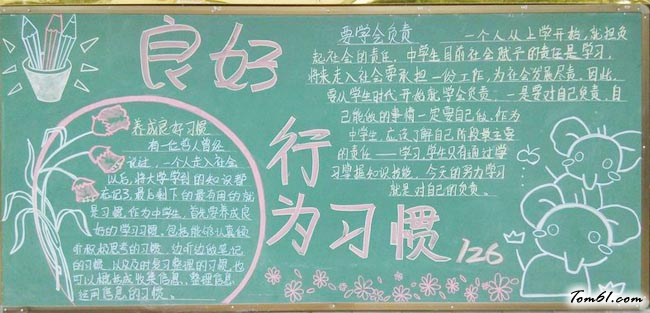 良好
行
为习惯
126
要学会负责
一个人从上学开始,就担负
起社会的责任,中学生目前社会赋予的责任是学习,
将来走入社会要承担一份工作,为社会发展尽责,因此,
要从学生时代开始就学会负责:一是要对自己负责,自
己能做的事情一定要自己做,作为
中学生,应该了解自己所段最主要
的责任——学习,学生只有通过学
习掌握知识技能,今天的努力学习
就是对自己的负责。
养成良好习惯
有一位哲人曾经
说过,一个人走入社会
以后,将大学学到的知识帮
忘记了,最后剩下的最有用的就
是习惯,作为中学生,首先要养成良
好的学习习惯,包括能够认真倾
听积极思考的习惯,边听边做笔记
的习惯,以及及时复习整理的习惯,也
可以概括成收集信息、整理信息
运用信息的习惯。
Tom61.com